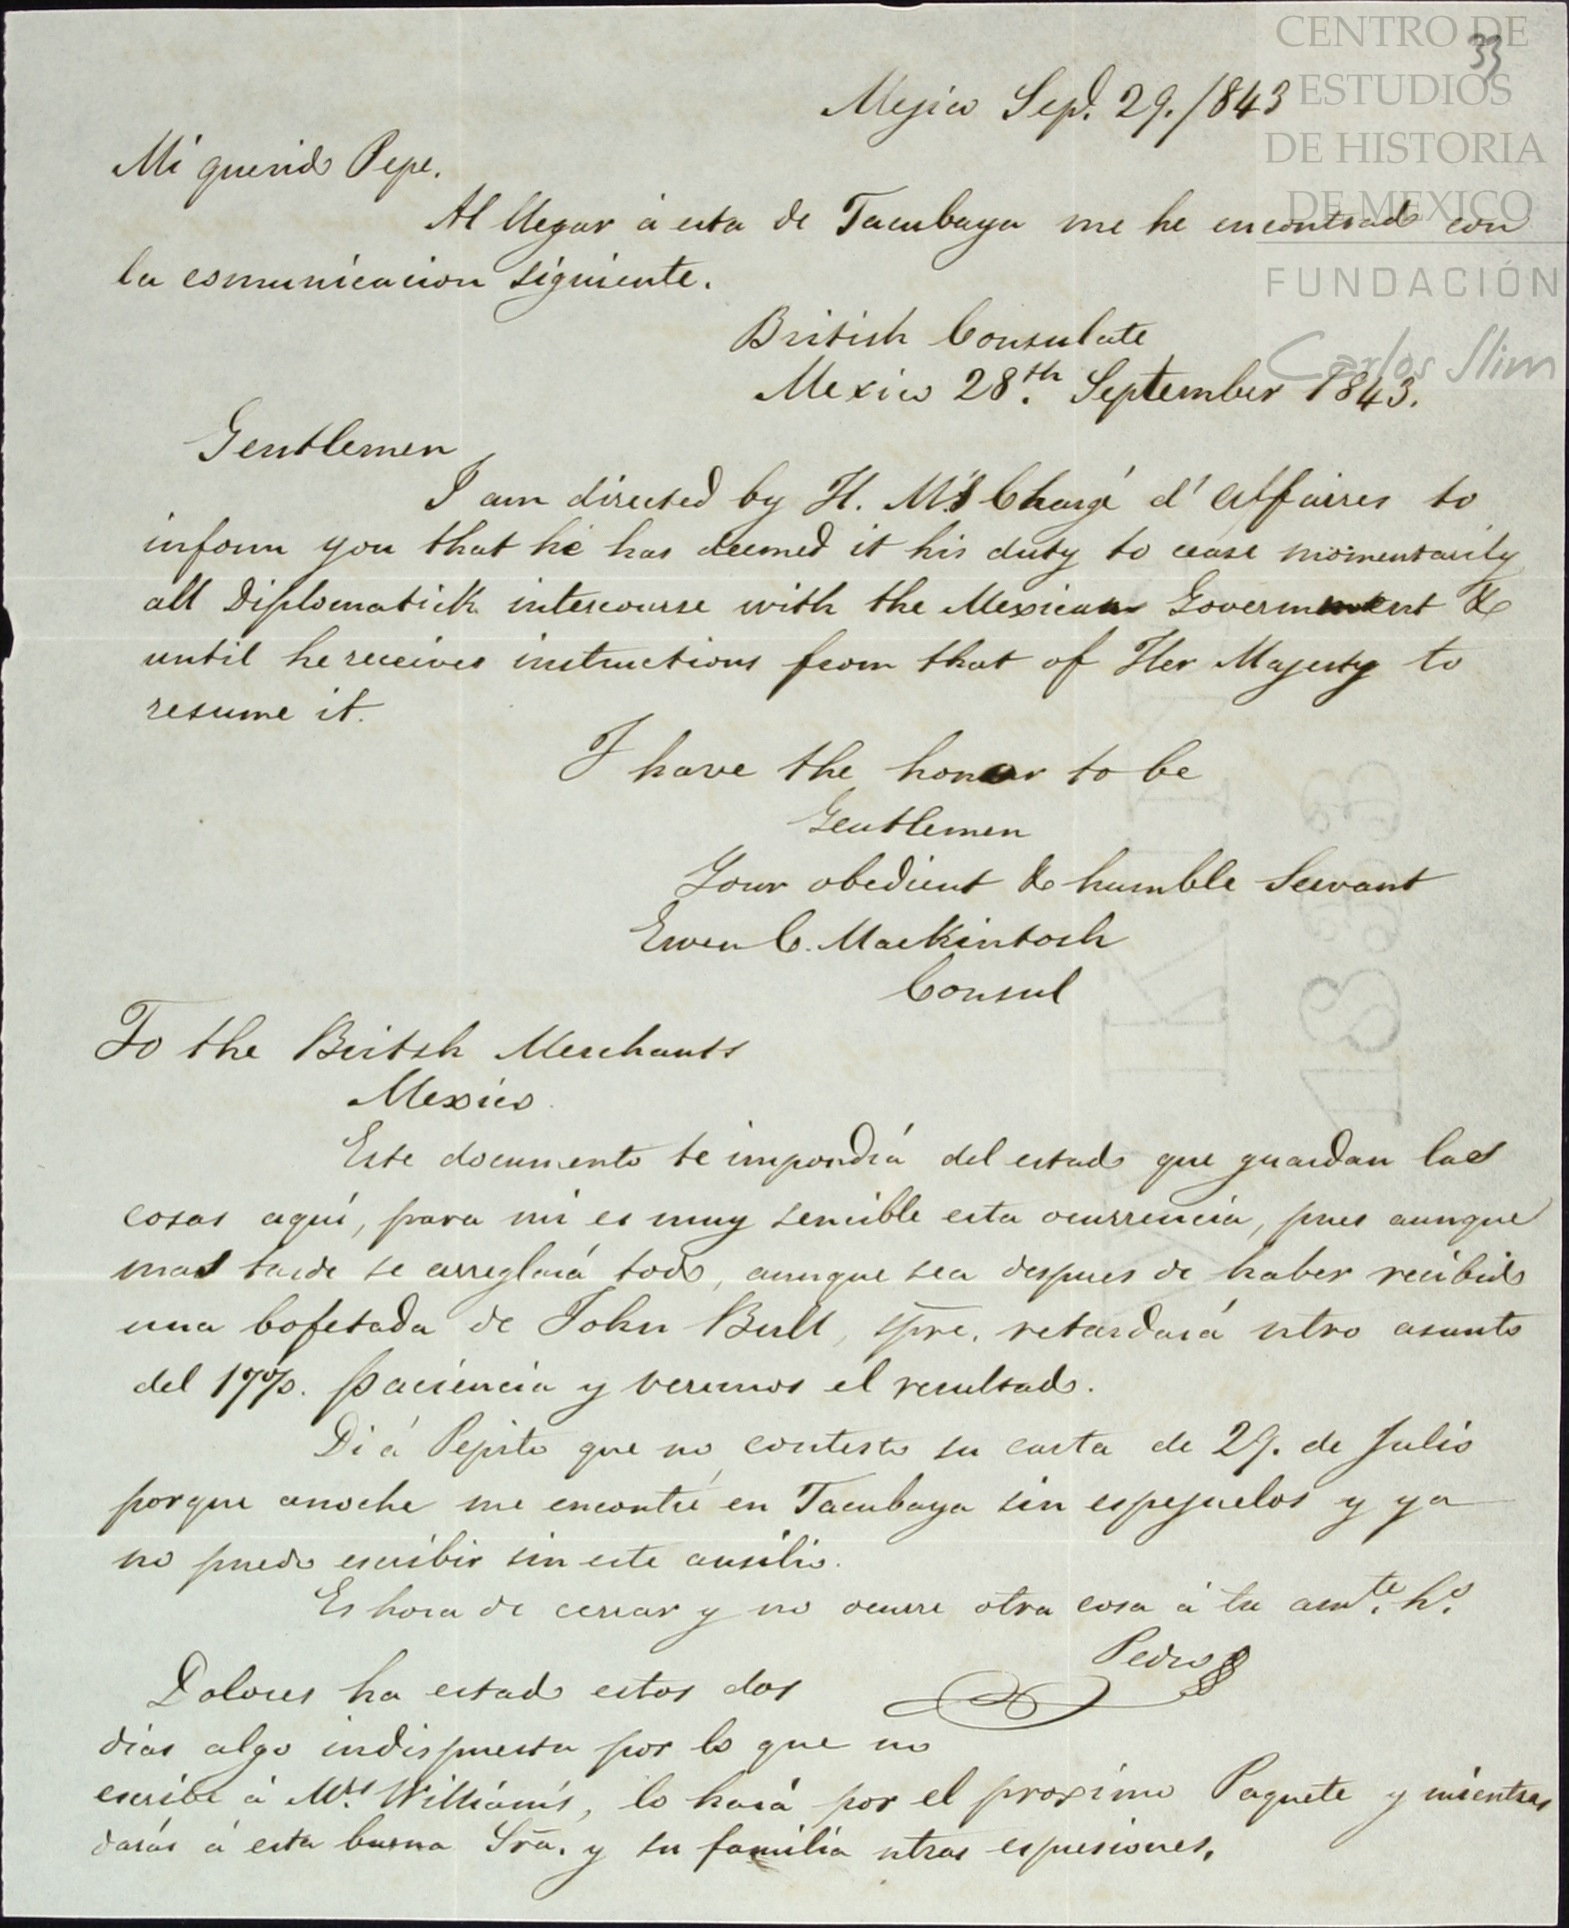 CENTRO DE
ESTUDIOS
DE HISTORIA
DE MEXICO
FUNDACIÓN
Carlos Slim
33
Mejico Sepe. 29./843
Mi querido Pepe.
Al llegar á esta de Tacubaya me he encontrado con
la comunicacion siguiente.
British Consulate
Mexico 28.th September 1843.
Gentlemen
I am directed by H. M.'s Chargé d' Affaires to
inform you that he has deemed it his duty to cease momentarily
all Diplomatick intercourse with the Mexican Government &
until he receives instructions from that of Her Majesty to
resume it.
I have the honour to be
Gentlemen
Your obedient & humble Servant
Ewen C. Mackintosh
Consul
To the Britsh Merchants
Mexico.
Este documento te impondrá del estado que guardan las
cosas aquí, para mi es muy sencible esta ocurrencia, pues aunque
mas tarde se arreglará todo, aunque sea despues de haber recibido
una bofetada de John Bull, spre. retardará ntro asunto
del 17%. paciencia y veremos el resultado.
Di á Pepito que no contesto su carta de 29. de Julio
porque anoche me encontré en Tacubaya sin espejuelos y ya
no puedo escribir sin este ausilio.
Es hora de cerrar y no ocurre otra cosa á tu amte. ho.
Pedro
Dolores ha estado estos dos
dias algo indispuesta por lo que no
escribe á Mrs. Williams, lo hará por el proximo Paquete y mientras
darás á esta buena Sra. y su familia ntras espresiones.